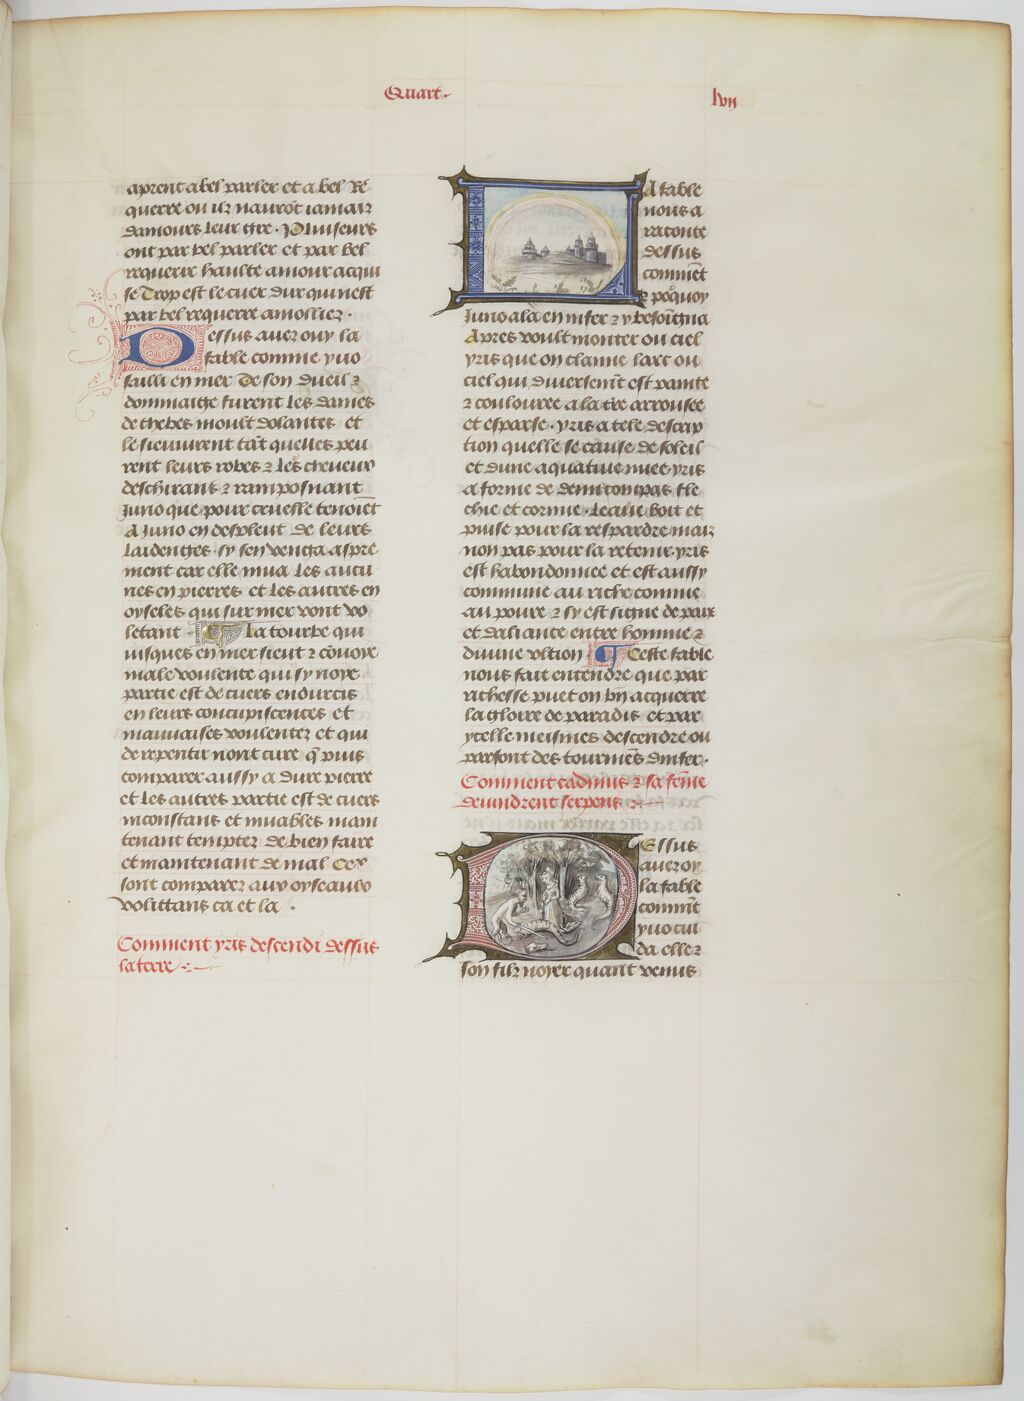 Quart
lvij
aprent a bel parler et a bel Re
querre ou ilz naurōt iamaiz
damours leur tire. Pluiseurs
ont par bel parler et par bel
requerir haulte amour acqui
se Trop est le cuer dur qui nest
par bel requerre amolliez.
Dessus auez ouy la
fable comme yno
failli en mer De son dueil ⁊
dommaige furent les dames
de thebes moult dolantes et
le sieuuirent tāt quelles peu
rent leurs robes ⁊ les cheueux
deschirans ⁊ ramposnant
Juno que pour cruelle tenoiēt
A Juno en despleut de leurs
laidenges. sy sen venga aspre
ment car elle mua les aucu
nes en pierres et les autres en
oyseles qui sur mer vont vo
letant ¶ La tourbe qui
iusques en mer sieut ⁊ cōuoye
male voulente qui sy noye
partie est de cuers endurcis
en leurs concupiscences et
mauuaises voulentez et qui
de repentir nont cure q̄ puis
comparer aussy a dure pierre
et les autres partie est de cuers
inconstans et muables main
tenant temptez de bien faire
et maintenant de mal Cex
sont comparez aux oyseaulx
volittans ca et la .
Comment yris descendi dessus
la terre
La fable
nous a
raconte
dessus
commēt
⁊ po͛quoy
Juno ala en infer ⁊ y besoingna
Apres voult monter ou ciel
yris que on claime larc ou
ciel qui diuersemēt est painte
⁊ coulouree a la t͛re arrousee
et esparse. yris a tele descrip
tion quelle se cause de soleil
et dune aquatiue nuee yris
a forme de demi compas fle
chie et cornue. Leaue boit et
puise pour la respardre maiz
non pas pour la retenir yris
est habondonnee et est aussy
commune au riche comme
au poure ⁊ sy est signe de paix
et daliance entre homme ⁊
diuine vltion ¶ Ceste fable
nous fait entendre que par
richesse puet on bn̄ acquerre
la gloire de paradis et par
ycelle meismes descendre ou
parfont des tourmēs dinfer.
Comment cadmus ⁊ sa fēme
deuindrent serpens
Dessus
auez oy
la fable
commēt
yno cui
da elle ⁊
son filz noyer quant venus